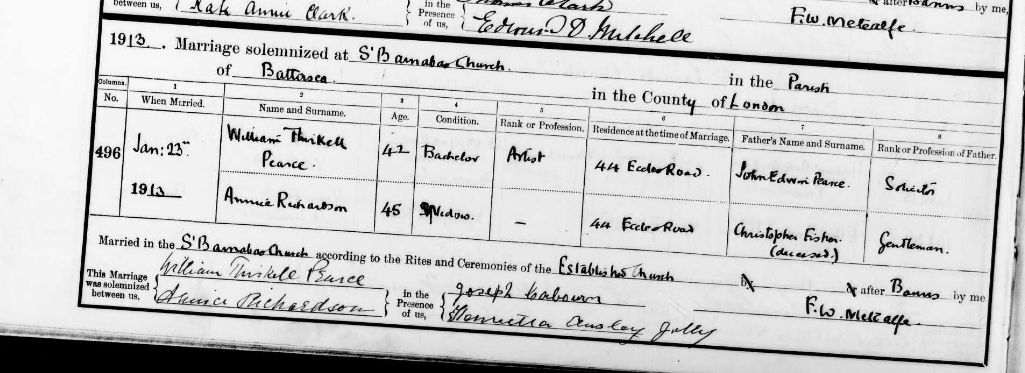 between us,
Kate Annie Clark.
in the
Presence
of us,
Edward D Mitchell
after Banns by me,
F.W. Metcalfe.
1913. Marriage solemnized at St Barnabas Church
of Battersea in the Parish
in the County of London
Columns. 1 2 3 4 5 6 7 8
No. When Married. Name and Surname. Age. Condition. Rank or Profession. Residence at the time of Marriage. Father's Name and Surname. Rank or Profession of Father.
496 Jan: 23rd 1913 William Thirkell Pearce. 42 Bachelor Artist 44 Eccles Road. John Edwin Pearce. Solicitor
Annie Richardson 45 Widow. — 44 Eccles Road Christopher Fisher. (deceased.) Gentleman.
Married in the St Barnabas Church according to the Rites and Ceremonies of the Established Church by or after Banns by me
This Marriage
was solemnized
between us,
William Thirkell Pearce
Annie Richardson
in the
Presence
of us,
Joseph
Henrietta Ansley Jolly
F.W. Metcalfe.